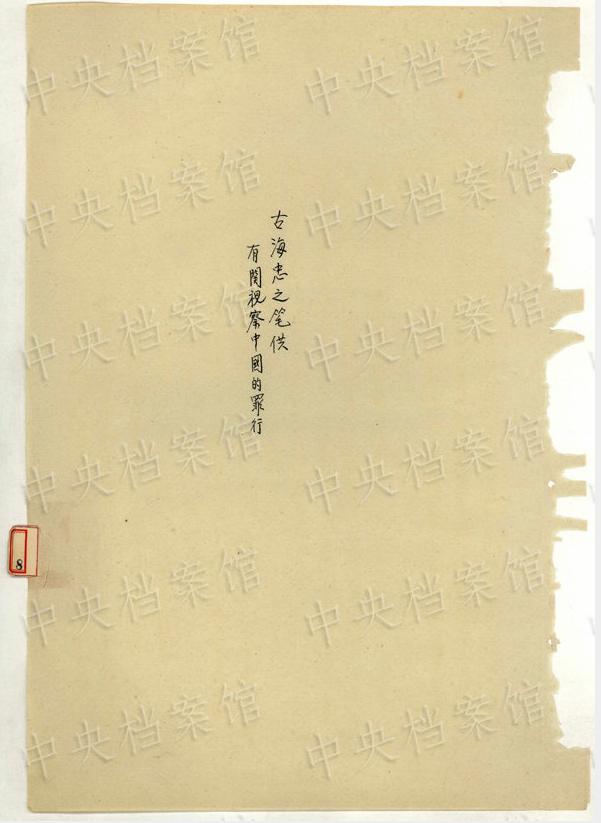 古海忠之笔供
有関視察中國的罪行
8
中央档案馆 中央档案馆
中央档案馆 中央档案馆
中央档案馆 中央档案馆
中央档案馆 中央档案馆
中央档案馆 中央档案馆
中央档案馆 中央档案馆